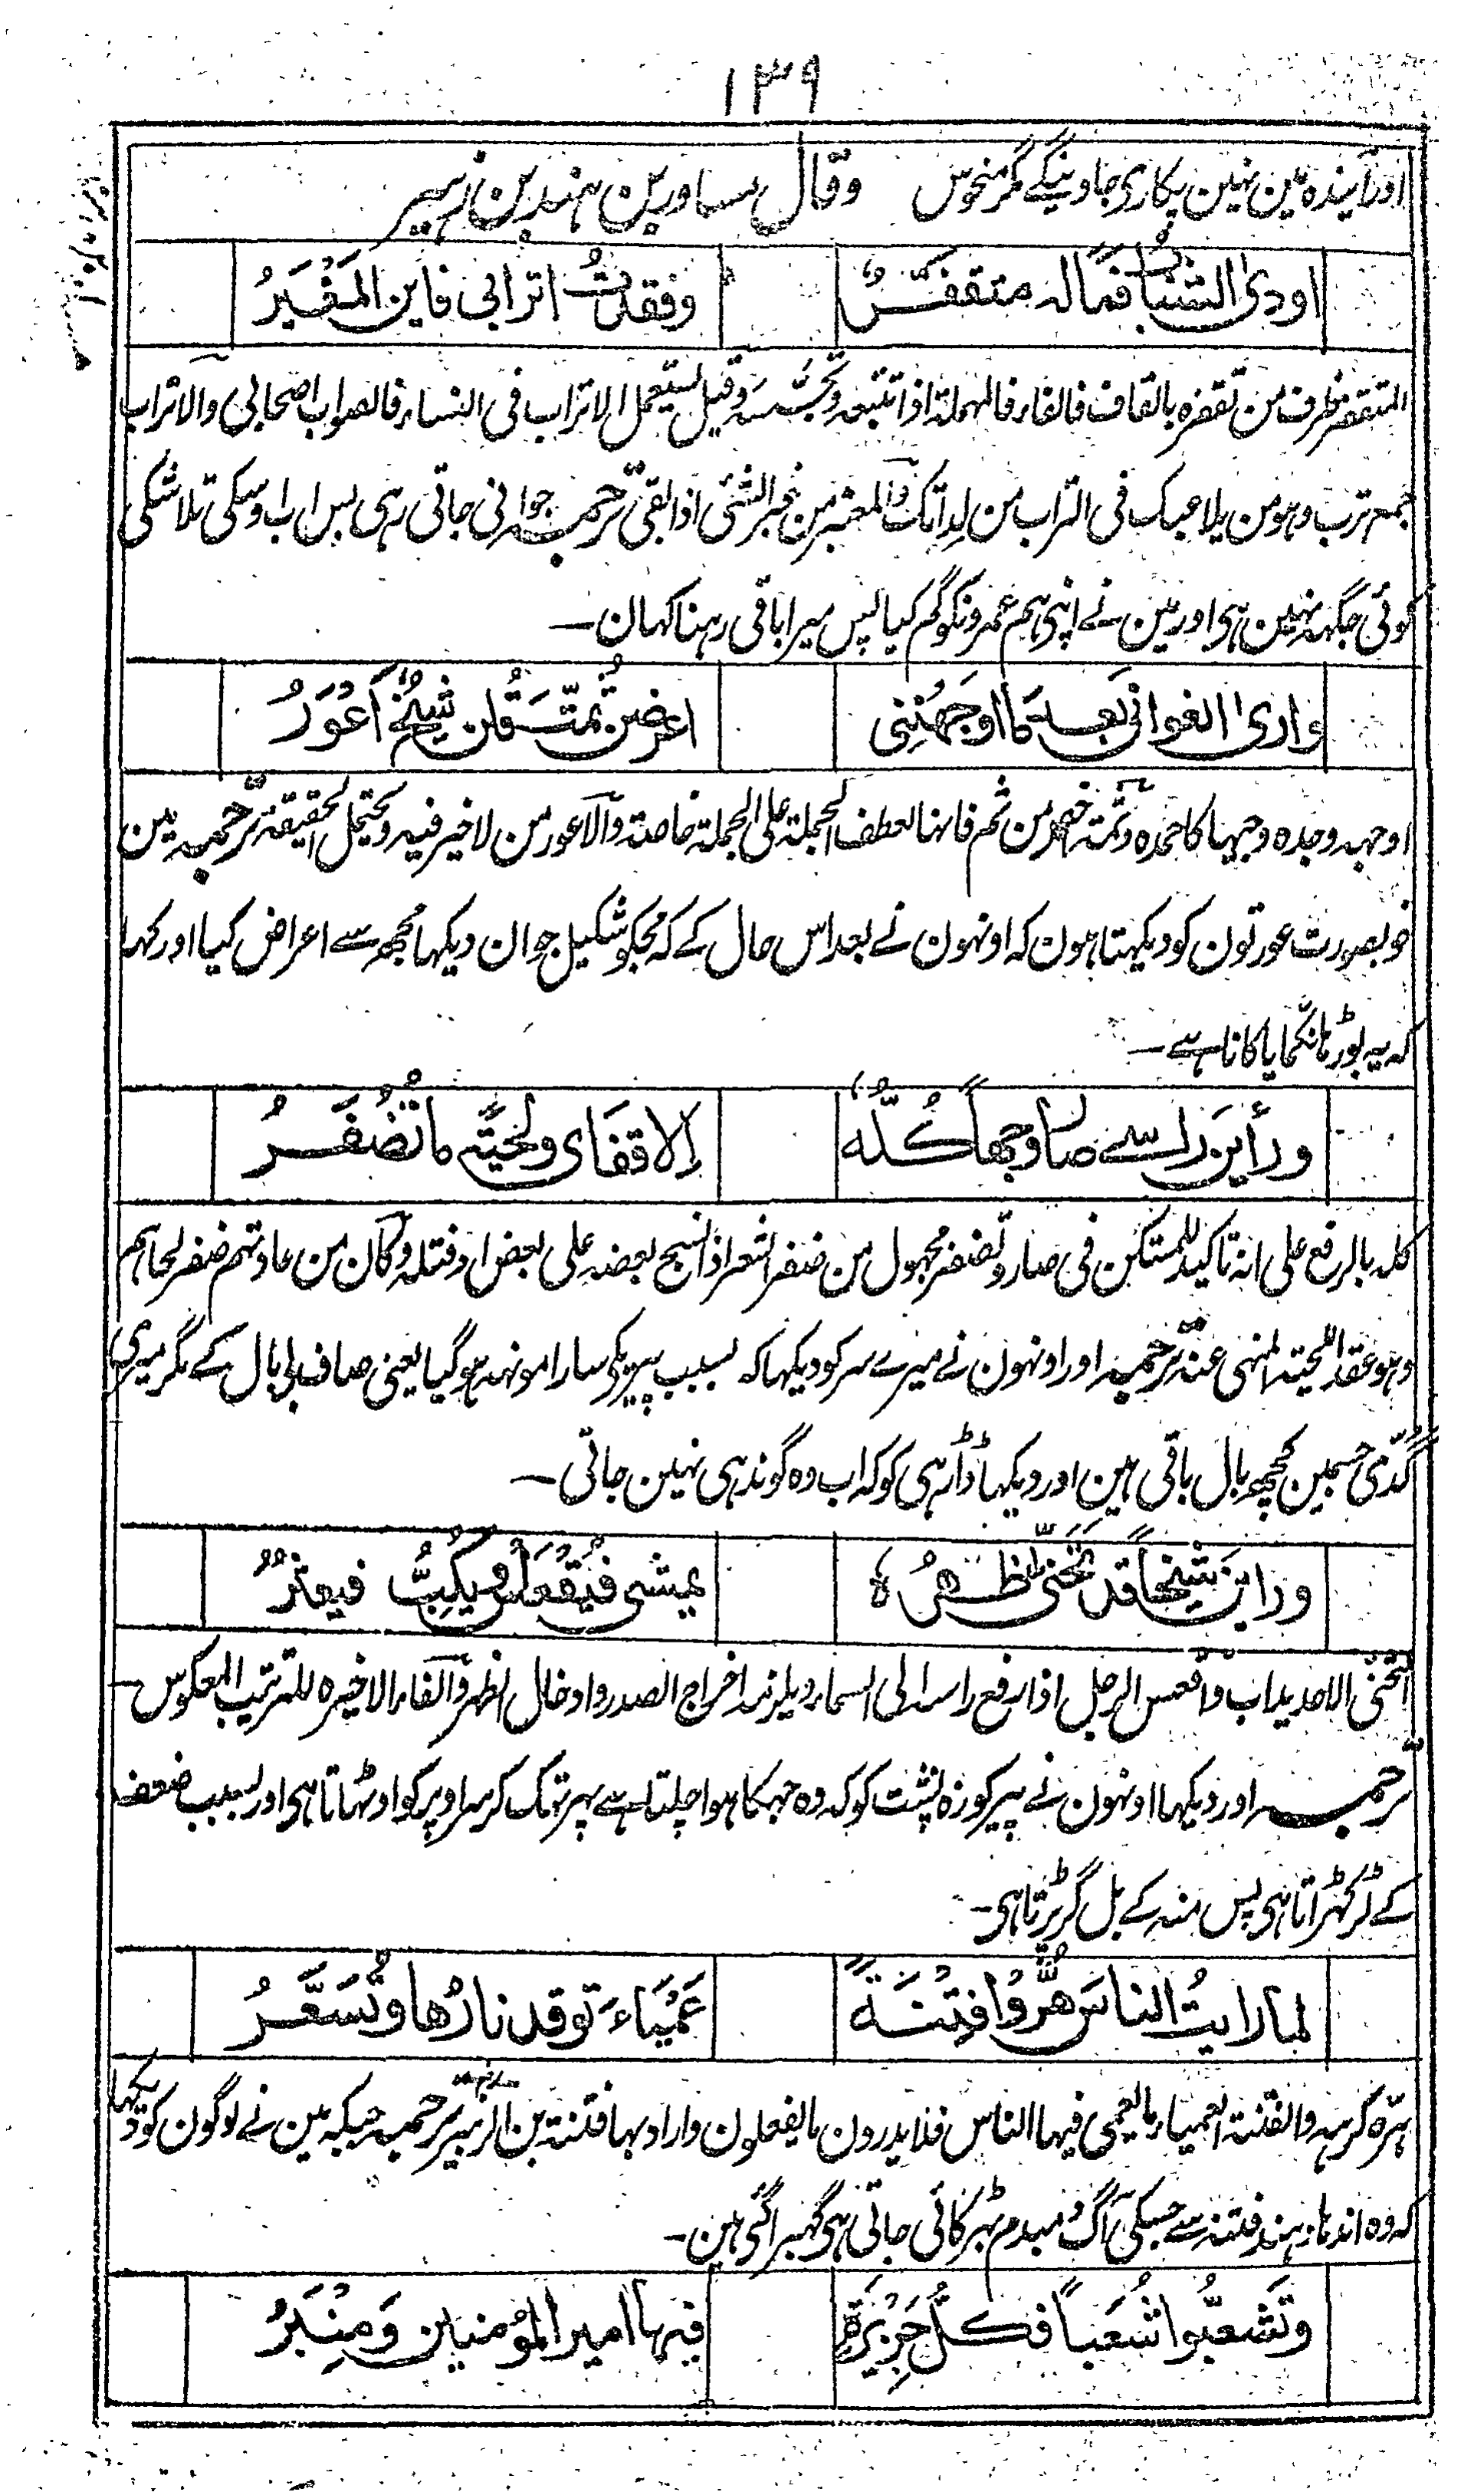 ١٣٩
اور آیندہ مین نہین پکاری جاوینگے مگر منحوس وقال مساور بن ہند بن زہیر
اودیٰ الشبابُ فمالہ متقفّرُ وفقدتُ اترابی فاین المَغْبَرُ
المتقفر ظرف من تقفرہ بالقاف فالفاء فالمہملۃ اذا تتبعہ وتجسّسہ وقیل یستعمل الاتراب فی النساء فالصواب اصحابی والاتراب
جمع ترب وہو من یلاعبک فی التراب من لِداتک والمغبر من غبر الشئ اذا بقی ترجمہ جوانی جاتی رہی پس اب اوسکی تلاشکی
کوئی جگہہ نہین ہی اور مین نے اپنی ہم عمرونکو گم کیا پس میرا باقی رہنا کہان ـ
واریٰ الغوانیَ بعد مَا اوجَهْنَنِی اعرضنَ ثُمّتَ قُلن شیخٌ اَعْوَرُ
اوجہہ وجدہ وجیہا کاحمدہ وثمتہ اخصر من ثم فانہا لعطف الجملۃ علی الجملۃ خاصۃ والاعور من لا خیر فیہ ویحتمل الحقیقۃ ترجمہ مین
خوبصورت عورتون کو دیکہتا ہون کہ اونہون نے بعد اس حال کے کہ مجکو شکیل جوان دیکہا مجھ سے اعراض کیا اور کہا
کہ یہ بوڑہا نکما یا کانا ہے ـ
ورأینَ راسے صار وجهاً کُلُّہُ اِلا قفَای ولحیَۃً ما تُضْفَرُ
کلہ بالرفع علی انہ تاکید للمستکن فی صار وتضفر مجہول من ضفر الشعر اذا نسج بعضہ علی بعض او فتلہ وکان من عادتہم ضفر لحاہم
وہو عقد اللحیۃ المنہی عنہ ترجمہ اور اونہون نے میرے سر کو دیکہا کہ بسبب پیری کے سارا مونہہ ہوگیا یعنی صاف بلا بال کے مگر میری
گدّی جسمین کچھ بال باقی ہین اور دیکہا ڈاڑہی کو کہ اب وہ گوندہی نہین جاتی ـ
وراینَ شیخاً قد تحنّیٰ ظهرُہٗ یمشی فیُقْعِسُ اَو یُکِبُّ فیعثرُ
التحنّی الاحدیداب واقعس الرجل اذا رفع راسہ الی السماء ویلزمہ اخراج الصدر وادخال الظہر والفاء الاخیرہ للترتیب المعکوس ـ
ترجمہ اور دیکہا اونہون نے پیر کوزہ پشت کو کہ وہ جہکا ہوا چلتا ہے پہر تہک کر سر اوپر کو اوٹہاتا ہی اور بسبب ضعف
کے لڑکہڑاتا ہی پس منہ کے بل گر پڑتا ہی ـ
لما رایتُ الناسَ هَرُّوا فِتْنَۃً عَمْیَاءَ توقد نارُها وتُسَعَّرُ
ہرّہ کرہہ والفتنۃ العمیاء ما یعمی فیہا الناس فلا یدرون ما یفعلون واراد بہا فتنۃ بن الزبیر ترجمہ جبکہ مین نے لوگون کو دیکہا
کہ وہ اندہا دہند فتنہ سے جسکی آگ دمبدم بہڑکائی جاتی ہی گہبرا گئی ہین ـ
وتَشعّبُوا شُعَباً فکلُّ جَزِیرَۃٍ فیها امیر المؤمنین وَمِنْبَرُ